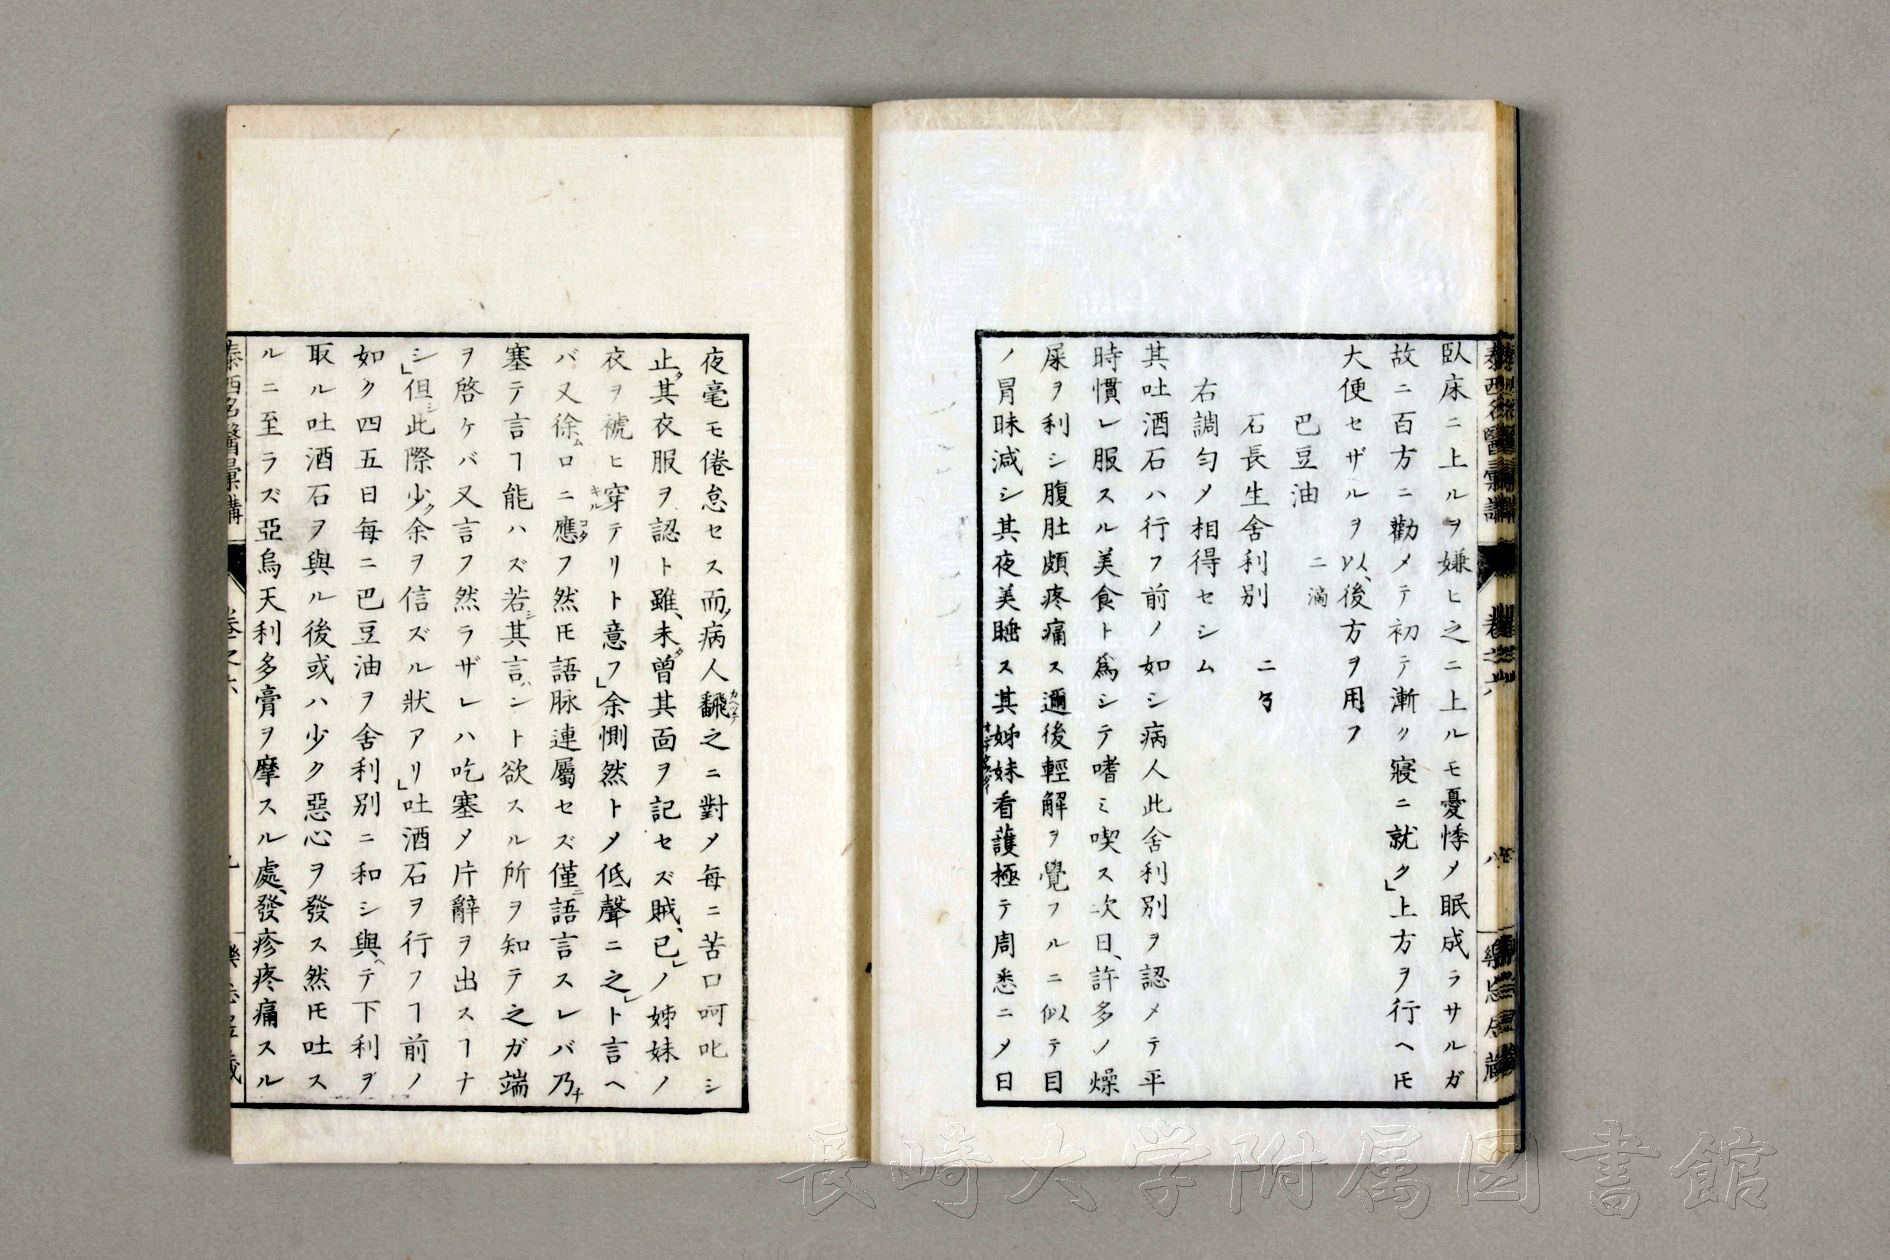 臥床ニ上ルヲ嫌ヒ之ニ上ルモ憂悸メ眠成ラサルガ
故ニ百方ニ勸メテ初テ漸ク寢ニ就ク」上方ヲ行ヘ𪜈
大便セザルヲ以、後方ヲ用フ
巴豆油 二滴
石長生舍利別 二
右調勻メ相得セシム
其吐酒石ハ行フ前ノ如シ病人此舍利別ヲ認メテ平
時慣レ服スル美食ト為シテ嗜ミ喫ス次日、許多ノ燥
屎ヲ利シ腹肚頗疼痛ス邇後輕解ヲ覺フルニ似テ目
ノ冒昧減シ其夜美睡ス其姊妹看護極テ周悉ニメ日
夜毫モ倦怠セス而病人飜之ニ對メ每ニ苦口呵叱シ
止其衣服ヲ認ト雖、未曾其面ヲ記セズ賊、已」ノ姊妹ノ
衣ヲ褫ヒ穿テリト意フ」余惻然トメ低聲ニ之」ト言ヘ
バ又徐ロニ應フ然𪜈語脉連屬セズ僅語言スレバ乃
塞テ言ヿ能ハズ若其言ント欲スル所ヲ知テ之ガ端
ヲ啓ケバ又言フ然ラザレハ吃塞メ片辭ヲ出スヿナ
シ」但此際少余ヲ信ズル狀アリ」吐酒石ヲ行フヿ前ノ
如ク四五日每ニ巴豆油ヲ舍利別ニ和シ與テ下利ヲ
取ル吐酒石ヲ與ル後或ハ少ク惡心ヲ發ス然𪜈吐ス
ルニ至ラズ亞烏天利多膏ヲ摩スル處、發疹疼痛スル
泰西名醫彙講
卷之六
九
長崎大学附属図書館